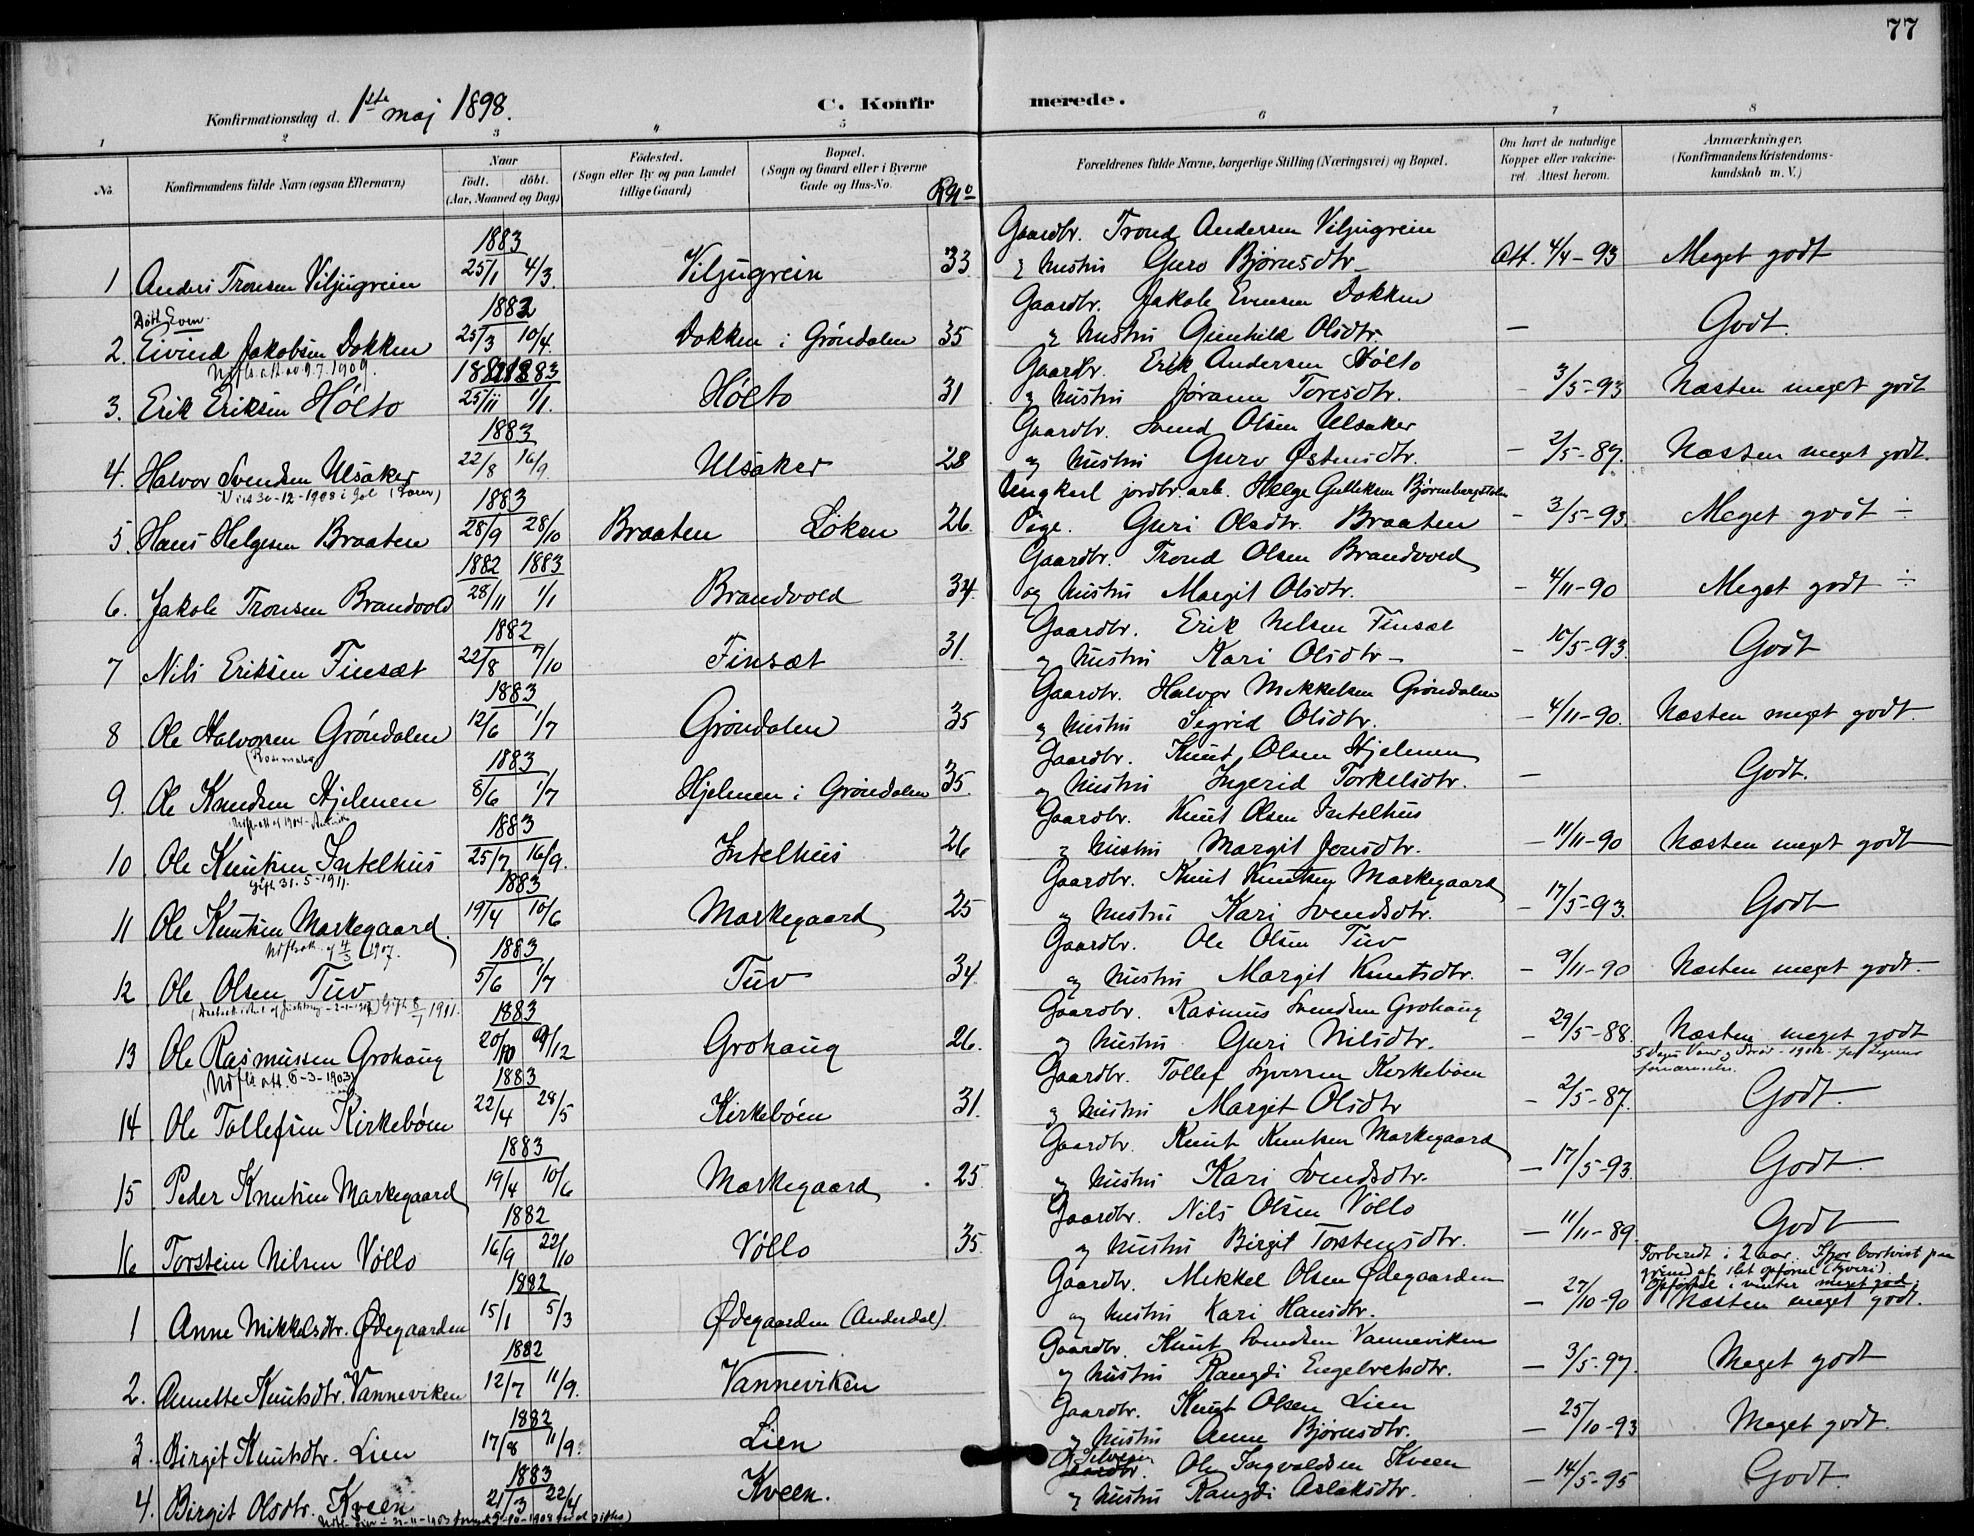 77
Konfirmationsdag d. 1ste maj 1898.
C. Konfirmerede.
1 2 3 4 5 6 7 8
No.
Konfirmandens fulde Navn (ogsaa Efternavn)
Naar
født. døbt.
(Aar, Maaned og Dag)
Fødested.
(Sogn eller By og paa Landet
tillige Gaard)
Bopæl.
(Sogn og Gaard eller i Byerne
Gade og Hus-No.
Forældrenes fulde Navne, borgerlige Stilling (Næringsvei) og Bopæl.
Om havt de naturlige
Kopper eller vakcineret.
Attest herom.
Anmærkninger.
(Konfirmandens Kristendomskundskab
m. V.)
1883 Gaardbr. Trond Andersen Viljugrein
1 Anders Tronsen Viljugrein 25/1 4/3. Viljugrein 33 & hustru Guro Bjørnsdtr. Att. 4/4-93 Meget godt
Døbt Even
1882 Gaardbr. Jakob Evensen Dokken
2. Eivind Jakobsen Dokken 25/3 10/4. Dokken i Grøndalen 35 & hustru Gunhild Olsdtr. — Godt.
1882 1883 Gaardbr. Erik Andersen Hølto
3. Erik Eriksen Hølto 25/11 1/1. Hølto 31 og hustru Jørann Toresdtr. - 3/5-93 Næsten meget godt
1883 Gaardbr. Svend Olsen Ulsaker
4. Halvor Svendsen Ulsaker 22/8 16/9. Ulsaker 28 og hustru Guro Østensdtr. - 2/5-87. Næsten meget godt.
1883 Ungkarl jordbr.arb. Helge Gulliksen
5. Hans Helgesen Braaten 28/9 28/10 Braaten Løken 26. Pige. Guri Olsdtr. Braaten - 3/5-93. Meget godt ÷
1882 1883 Gaardbr. Trond Olsen Brandvold
6. Jakob Tronsen Brandvold 28/11 1/1 Brandvold 34. og hustru Margit Olsdtr. - 4/11-90 Meget godt ÷
1882 Gaardbr. Erik Nelsen Finsæt
7 Nils Eriksen Finsæt 22/8 7/10 Finsæt 31. og hustru Kari Olsdtr - - 10/5-93. Godt
1883 Gaardbr. Halvor Mekkelsen Grøndalen
8 Ole Halvorsen Grøndalen 12/6 1/7 Grøndalen 35 og hustru Segrid Olsdtr. - 4/11-90. Næsten meget godt.
1883 Gaardbr. Knut Olsen Hjelmen
9. Ole Knudsen Hjelmen 8/6 1/7 Hjelmen i Grøndalen 35. og hustru Ingerid Torkelsdtr. — Godt.
1883 Gaardbr. Knut Olsen Intelhus
10 Ole Knutsen Intelhus 25/7 16/9. Intelhus 26 & hustru Margit Jensdtr. - 11/11-90 Næsten meget godt
Gift 31-5-1911.
1883 Gaardbr. Knut Knutsen Markegaard
11 Ole Knutsen Markegaard. 19/4 10/6 Markegaard 25 og hustru Kari Svendsdtr. - 17/5-93. Godt
1883 Gaardbr. Ole Olsen Tuv
12 Ole Olsen Tuv 5/6 1/7 Tuv 34. og hustru Margit Knutsdtr. - 9/11-90 Næsten meget godt.
1883 Gaardbr. Rasmus Svendsen Grohaug
13 Ole Rasmussen Grohaug 20/10 9/12 Grohaug 26. og hustru Guri Nilsdtr. - 29/5-88. Næsten meget godt
1883 Gaardbr. Tollef Syversen Kirkebøen
14 Ole Tollefsen Kirkebøen 22/4 28/5 Kirkebøen 31. og hustru Margit Olsdtr - 2/5-87. Godt.
1883 Gaardbr. Knut Knutsen Markegaard
15 Peder Knutsen Markegaard 19/4 10/6 Markegaard 25 og hustru Kari Svendsdtr. - 17/5-93. Godt.
1882 Gaardbr. Nils Olsen Vøllo
16 Torstein Nilsen Vøllo 16/9 22/10 Vøllo 35. og hustru Birgit Torstensdtr. - 11/11-89 Godt
1882 Gaardbr. Mekkel Olsen Ødegaarden
1 Anne Mikkelsdtr. Ødegaarden 15/1 5/3 Ødegaarden (Anderdal). og hustru Kari Hansdtr. - 27/10-90 Næsten meget godt.
1882 Gaardbr. Knut Svendsen Vanneviken
2. Annette Knutsdtr. Vanneviken 12/7 11/9. Vanneviken og hustru Rangdi Engebretsdtr. - 3/5-97. Meget godt
1882 Gaardbr. Knut Olsen Lien
3. Birgit Knutsdtr. Lien 17/8 11/9. Lien og hustru Anne Bjørnsdtr. - 25/10-93 Meget godt.
1883 Gaardbr. Ole Ingvaldsen Kveen
4. Birgit Olsdtr. Kveen 21/3 22/4 Kveen. og hustru Rangdi Aslaksdtr. - 14/5-95 Godt